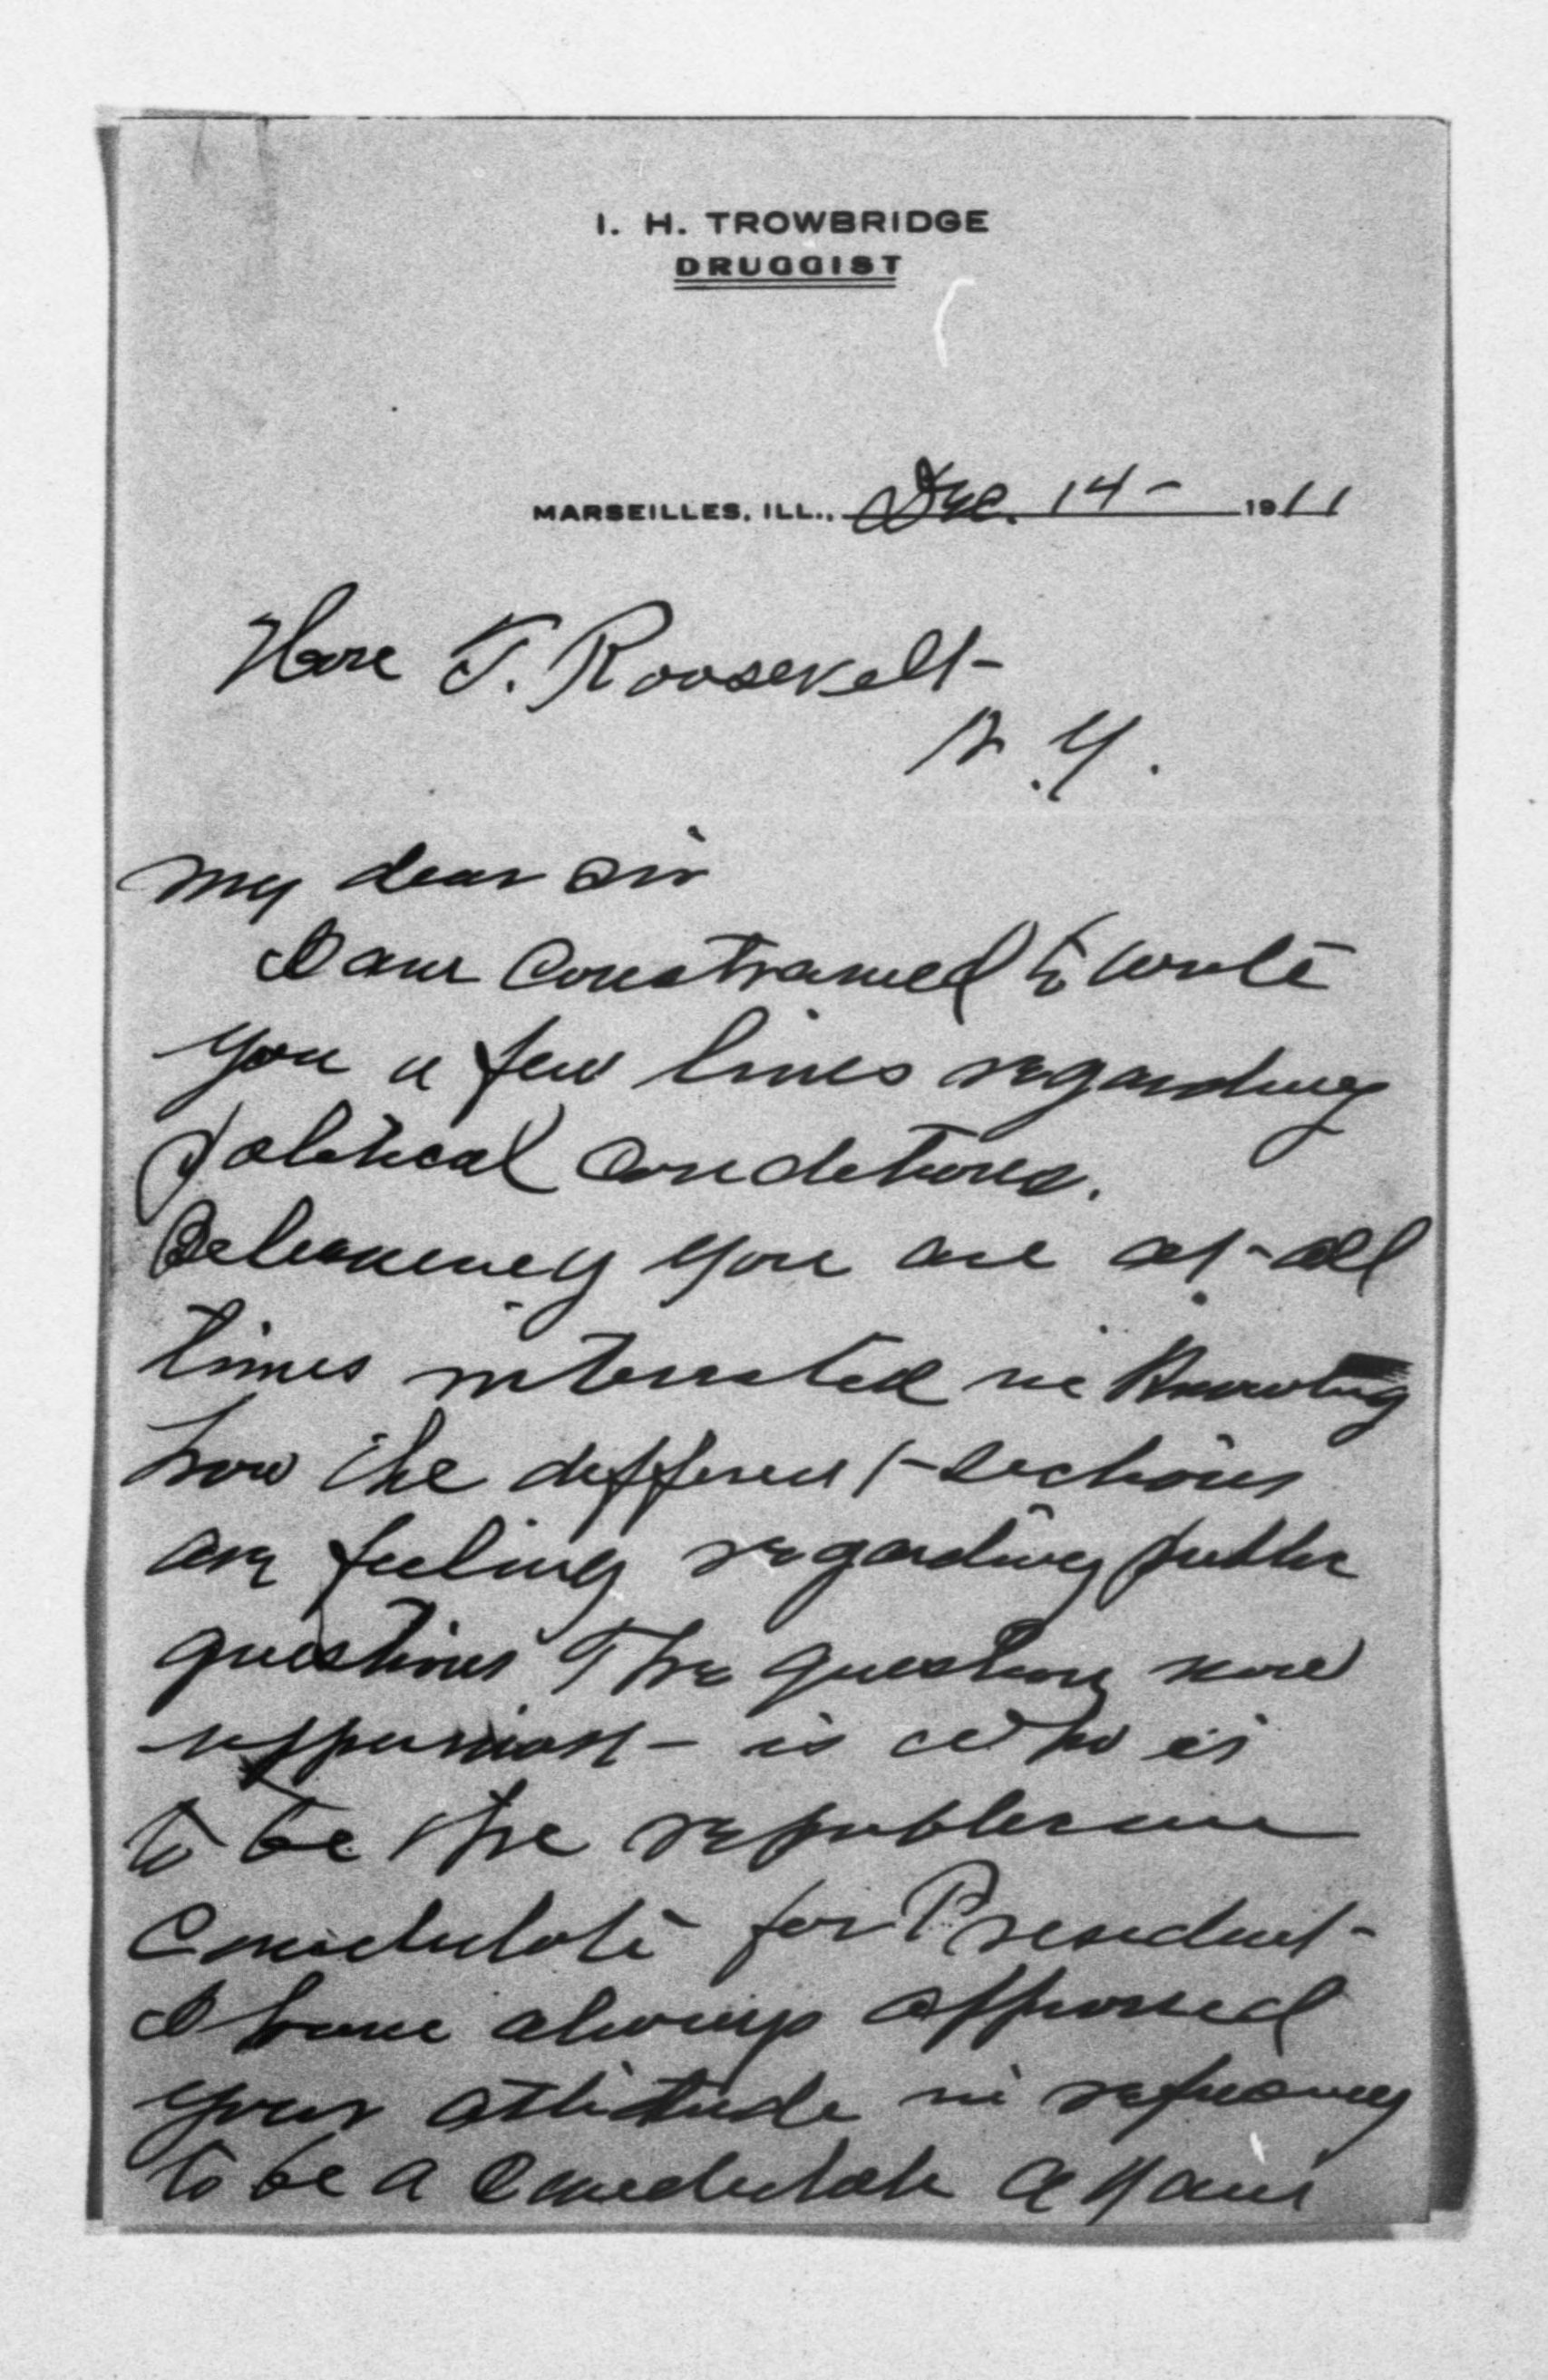 I. H. TROWBRIDGE
DRUGGIST
MARSEILLES, ILL., Dec. 14- 1911
Hon T. Roosevelt-
N.Y.
My dear Sir
I am constrained to write
you a few lines regarding
political conditions.
Believing you are at-all
times interested in Knowing
how the different-sections
are feeling regarding public
questions The question now
uppermost- is who is
to be the republican
Candidate for President-
I have always approved
your attitude in refusing
to be a Candidate again